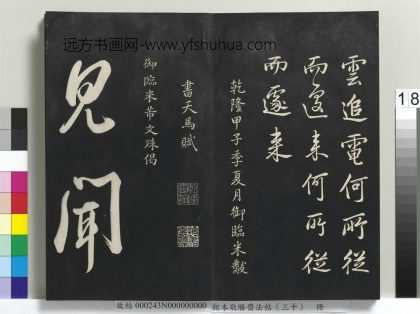 远方书画网-www.yfshuhua.com
雲追電何所從
而遽来何所從
而遽来
乾隆甲子季夏月御臨米黻
書天馬賦
御臨米芾文殊偈
見聞
18
故帖 000243N000000000 拓本敬勝齋法帖（三十） 冊